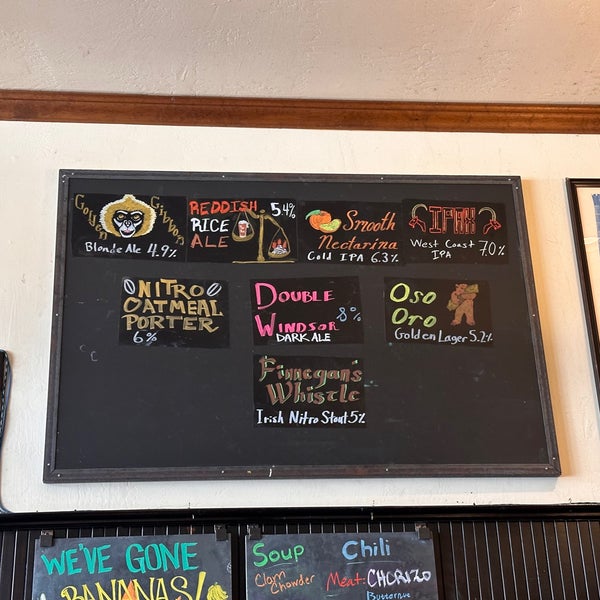 Golden Givvon
Blonde Ale 4.9%
REDDISH 5.4%
RICE
ALE
Smooth
Nectarina
Cold IPA 6.3%
IPAX
West Coast 7.0%
IPA
NITRO
OATMEAL
PORTER
6%
DOUBLE
WINDSOR 8%
DARK ALE
Oso
Oro
Golden Lager 5.2%
Finnegan's
Whistle
Irish Nitro Stout 5%
WE'VE GONE
BANANAS!
Soup
Clam
Chowder
Chili
Meat: CHORIZO
Butternut